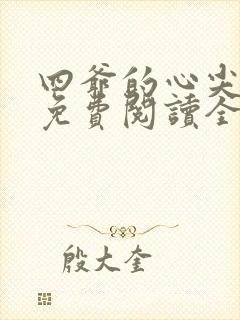 四爷的心尖
免費閱讀全
殷大奎